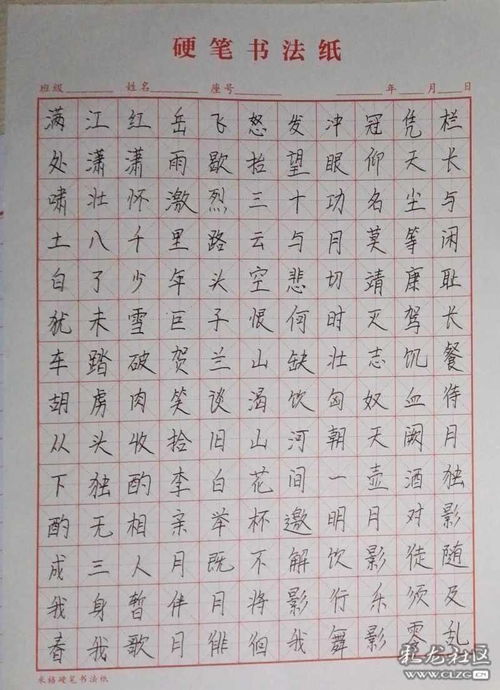 硬笔书法纸
班级 姓名 座号 年 月 日
满江红岳飞怒发冲冠凭栏
处潇潇雨歇抬望眼仰天长
啸壮怀激烈三十功名尘与
土八千里路云与月莫等闲
白了少年头空悲切靖康耻
犹未雪巨子恨何时灭驾长
车踏破贺兰山缺壮志饥餐
胡虏肉笑谈渴饮匈奴血待
从头收拾旧山河朝天阙月
下独酌李白花间一壶酒独
酌无相亲举杯邀明月对影
成三人月既不解饮影徒随
我身暂伴月将影行乐须及
春我歌月徘徊我舞影零乱
米格硬笔书法纸
龙社区
WWW.CLZG.CN